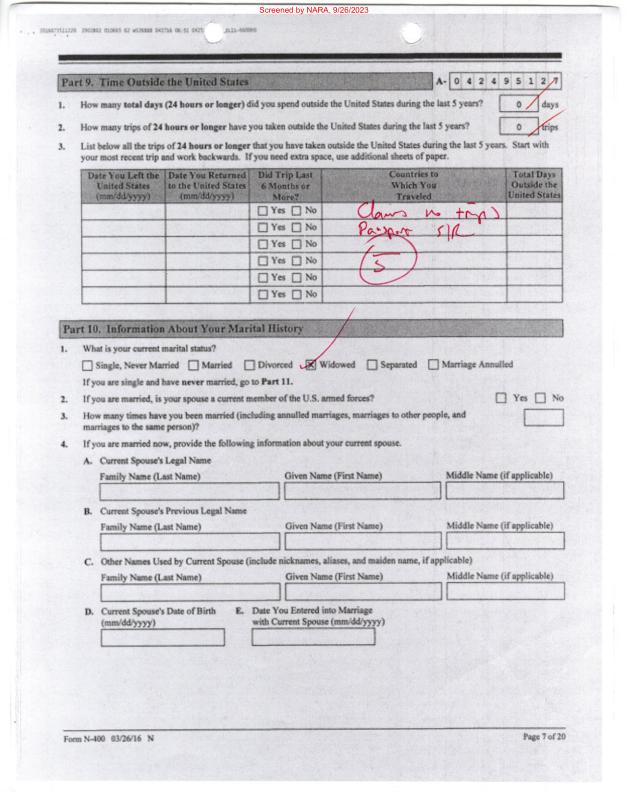 Screened by NARA, 9/26/2023
Part 9. Time Outside the United States
A- 0 4 2 4 9 5 1 2 7
1. How many total days (24 hours or longer) did you spend outside the United States during the last 5 years? 0 days
2. How many trips of 24 hours or longer have you taken outside the United States during the last 5 years? 0 trips
3. List below all the trips of 24 hours or longer that you have taken outside the United States during the last 5 years. Start with
your most recent trip and work backwards. If you need extra space, use additional sheets of paper.
Date You Left the United States (mm/dd/yyyy) Date You Returned to the United States (mm/dd/yyyy) Did Trip Last 6 Months or More? Countries to Which You Traveled Total Days Outside the United States
Yes No Claims no trips
Yes No Passport S/R
Yes No
Yes No 5
Yes No
Yes No
Part 10. Information About Your Marital History
1. What is your current marital status?
Single, Never Married Married Divorced Widowed Separated Marriage Annulled
If you are single and have never married, go to Part 11.
2. If you are married, is your spouse a current member of the U.S. armed forces? Yes No
3. How many times have you been married (including annulled marriages, marriages to other people, and
marriages to the same person)?
4. If you are married now, provide the following information about your current spouse.
A. Current Spouse's Legal Name
Family Name (Last Name) Given Name (First Name) Middle Name (if applicable)
B. Current Spouse's Previous Legal Name
Family Name (Last Name) Given Name (First Name) Middle Name (if applicable)
C. Other Names Used by Current Spouse (include nicknames, aliases, and maiden name, if applicable)
Family Name (Last Name) Given Name (First Name) Middle Name (if applicable)
D. Current Spouse's Date of Birth (mm/dd/yyyy) E. Date You Entered into Marriage with Current Spouse (mm/dd/yyyy)
Form N-400 03/26/16 N Page 7 of 20